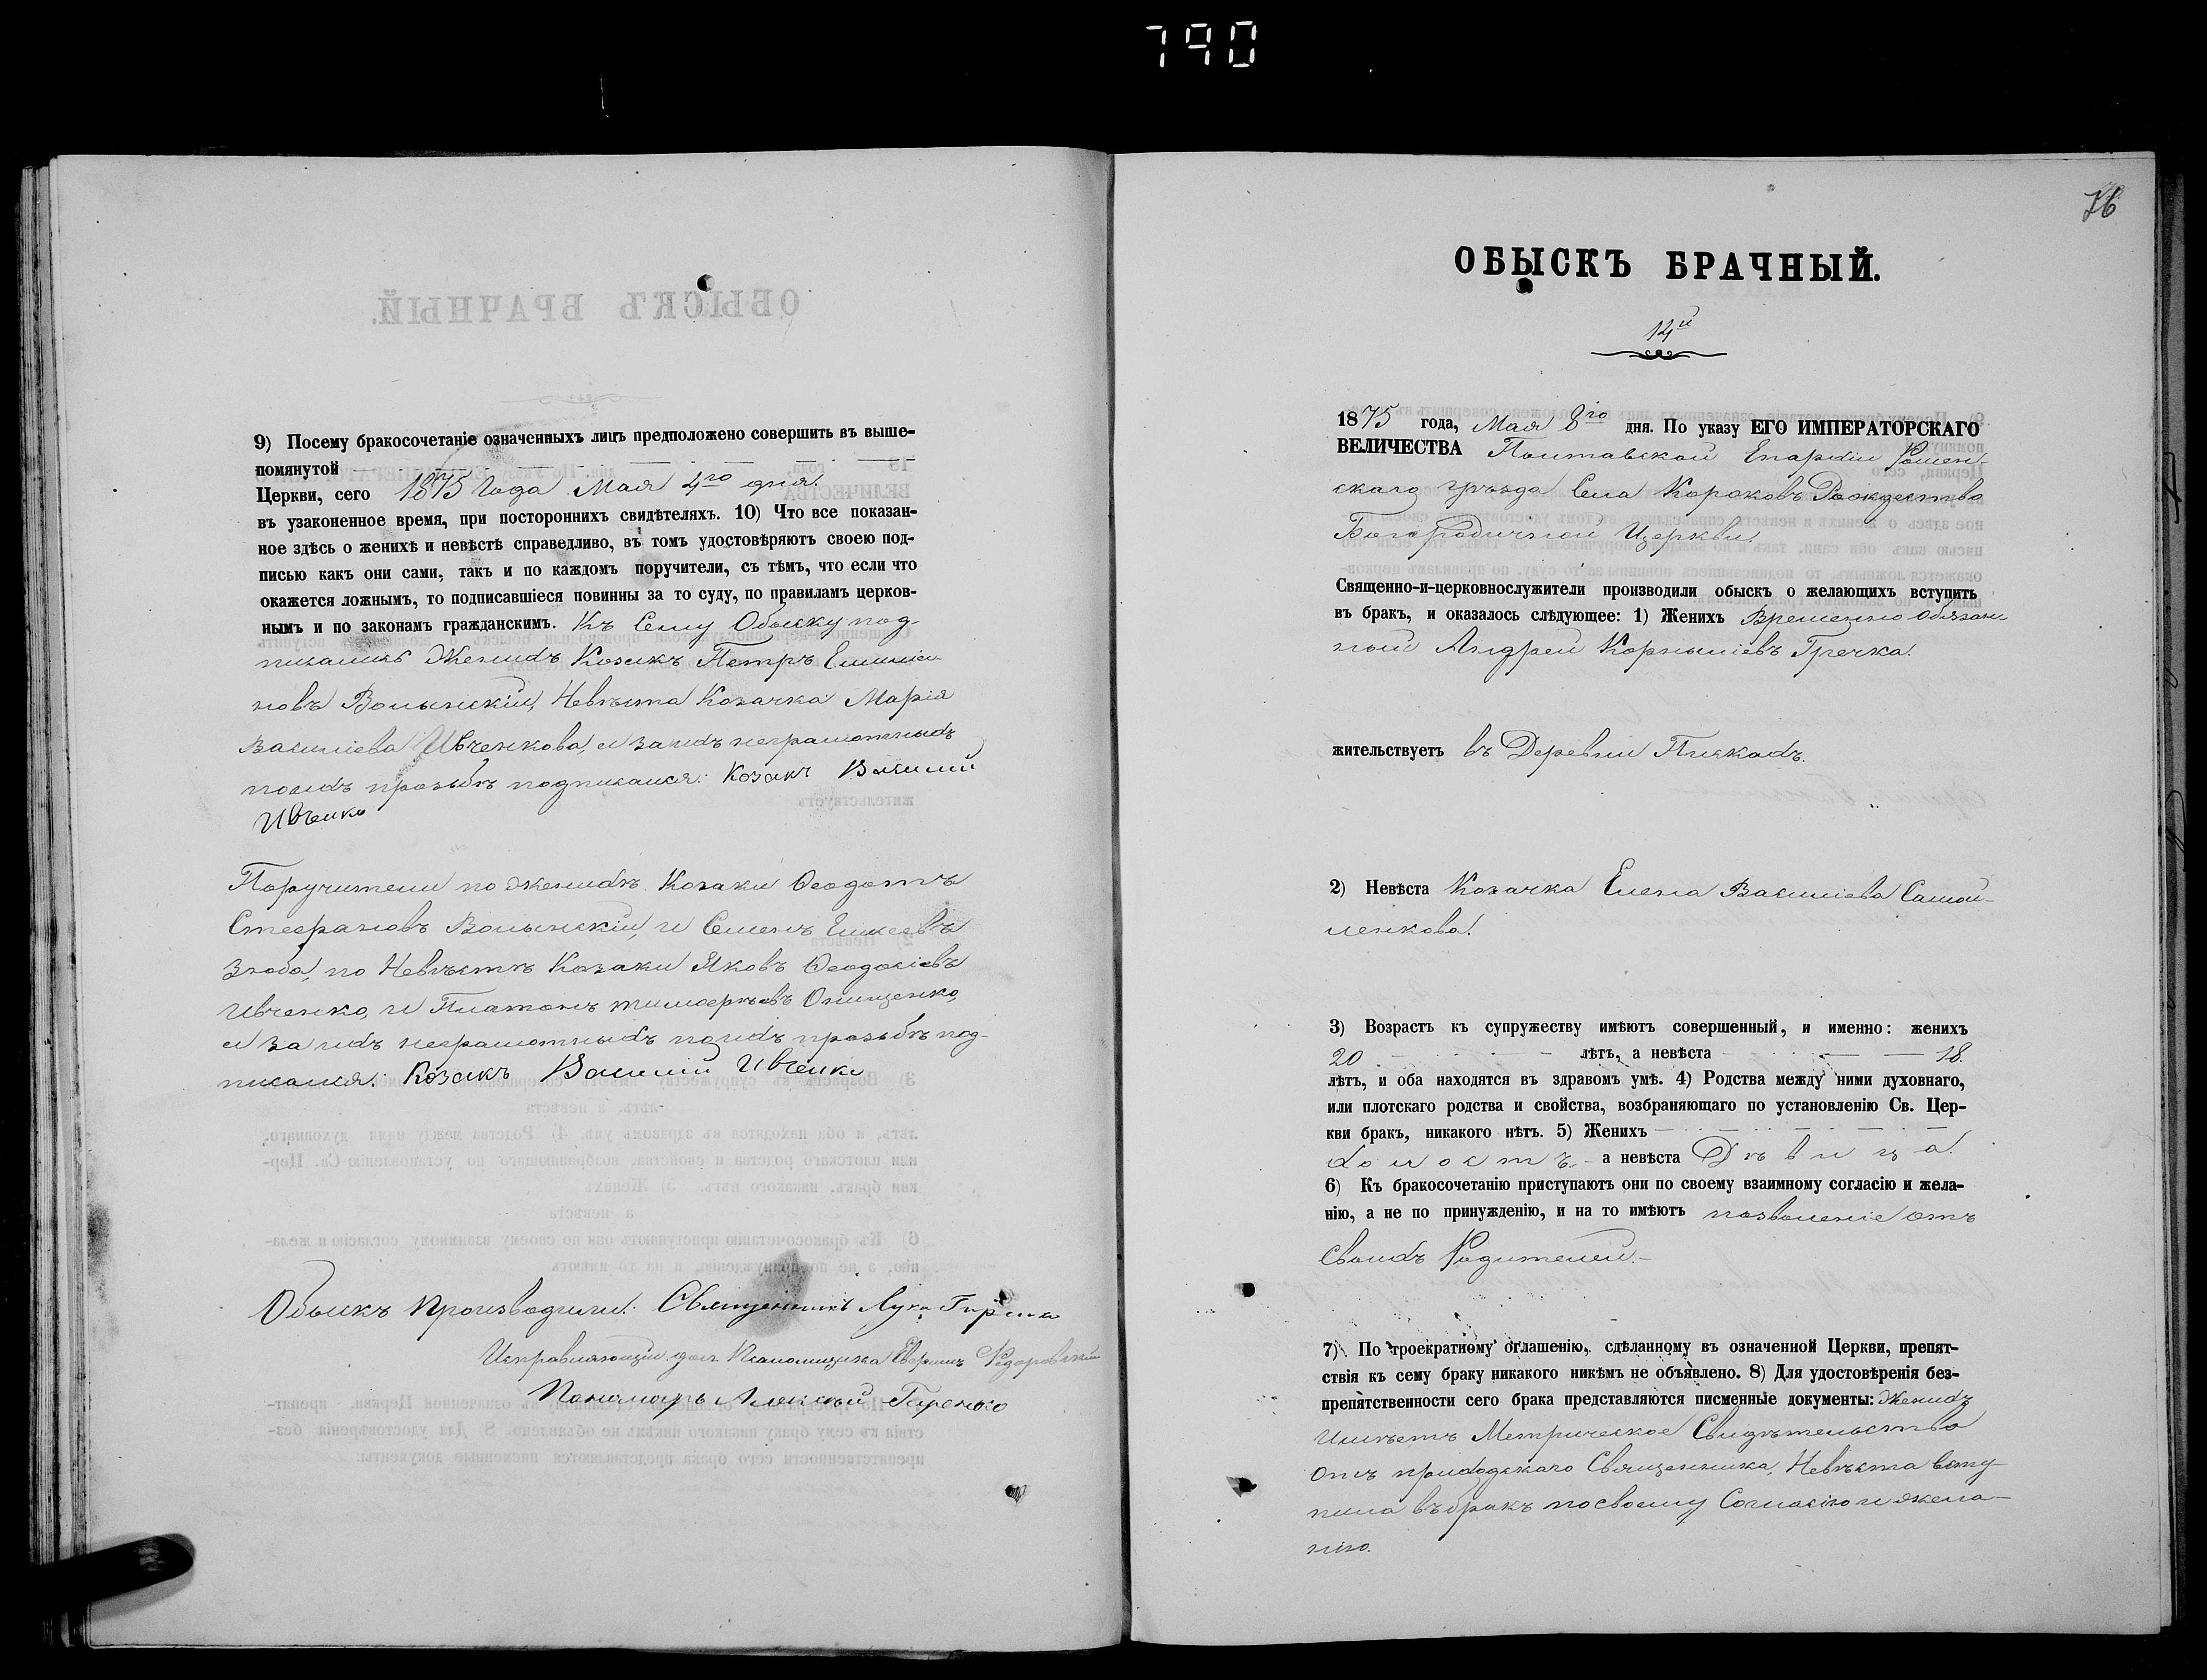 790
9) Посему бракосочетаніе означенныхъ лицъ предположено совершить въ выше-
помянутой
Церкви, сего 1875 Года Мая 4го дня.
въ узаконенное время, при постороннихъ свидѣтеляхъ. 10) Что все показан-
ное здѣсь о женихѣ и невѣстѣ справедливо, въ томъ удостовѣряютъ своею под-
писью какъ они сами, такъ и по каждомъ поручители, съ тѣмъ, что если что
окажется ложнымъ, то подписавшіеся повинны за то суду, по правиламъ церков-
нымъ и по законамъ гражданскимъ. Къ Сему Обыску под-
писались Женихъ Козакъ Петръ
новъ Волынскій, Невѣста Козачка Марія
Василіева Ивченкова, а за нихъ неграмотныхъ
поихъ прозьбѣ подписался: Козакъ Василий
Ивченко
Поручители по женихѣ Козаки Ѳеодотъ
Стефановъ Волынскій, и Семенъ Елисеевъ
Зюба, по Невѣстѣ Козаки Яковъ Ѳеодосіевъ
Ивченко, и Платонъ тимоѳеевъ Онищенко,
а за нихъ неграмотныхъ поихъ прозьбѣ под-
писался: Козакъ Василий Ивченко
Обыскъ производили: Священникъ Лука
Исправляющій дол. Псаломщика
Пономарь Алексѣй
76
ОБЫСКЪ БРАЧНЫЙ.
14й
1875 года, Мая 8го дня. По указу ЕГО ИМПЕРАТОРСКАГО
ВЕЛИЧЕСТВА Полтавской Епархіи Ромен-
скаго уѣзда Села Коровковъ Рождество
Богородичной Церкви.
Священно-и-церковнослужители производили обыскъ о желающихъ вступить
въ бракъ, и оказалось слѣдующее: 1) Женихъ Временно обязан-
ный Андрей Корныліевъ Гречка.
жительствуетъ въ Деревни Пискахъ.
2) Невѣста Козачка Елена Василіева Самой-
ленкова.
3) Возрастъ къ супружеству имѣютъ совершенный, и именно: женихъ
20 лѣтъ, а невѣста 18
лѣтъ, и оба находятся въ здравомъ умѣ. 4) Родства между ними духовнаго,
или плотскаго родства и свойства, возбраняющаго по установленію Св. Цер-
кви бракъ, никакого нѣтъ. 5) Женихъ
холостъ, а невѣста Дѣвица.
6) Къ бракосочетанію приступаютъ они по своему взаимному согласію и жела-
нію, а не по принужденію, и на то имѣютъ позволеніе отъ
Своихъ Родителей.
7) По троекратному оглашенію, сдѣланному въ означенной Церкви, препят-
ствія къ сему браку никакого никѣмъ не объявлено. 8) Для удостовѣренія без-
препятственности сего брака представляются писменные документы: Женихъ
Имѣетъ Метрическое Свидѣтельство
отъ приходскаго Священника, Невѣста всту-
пила въ бракъ по своему Согласію и жела-
нію.